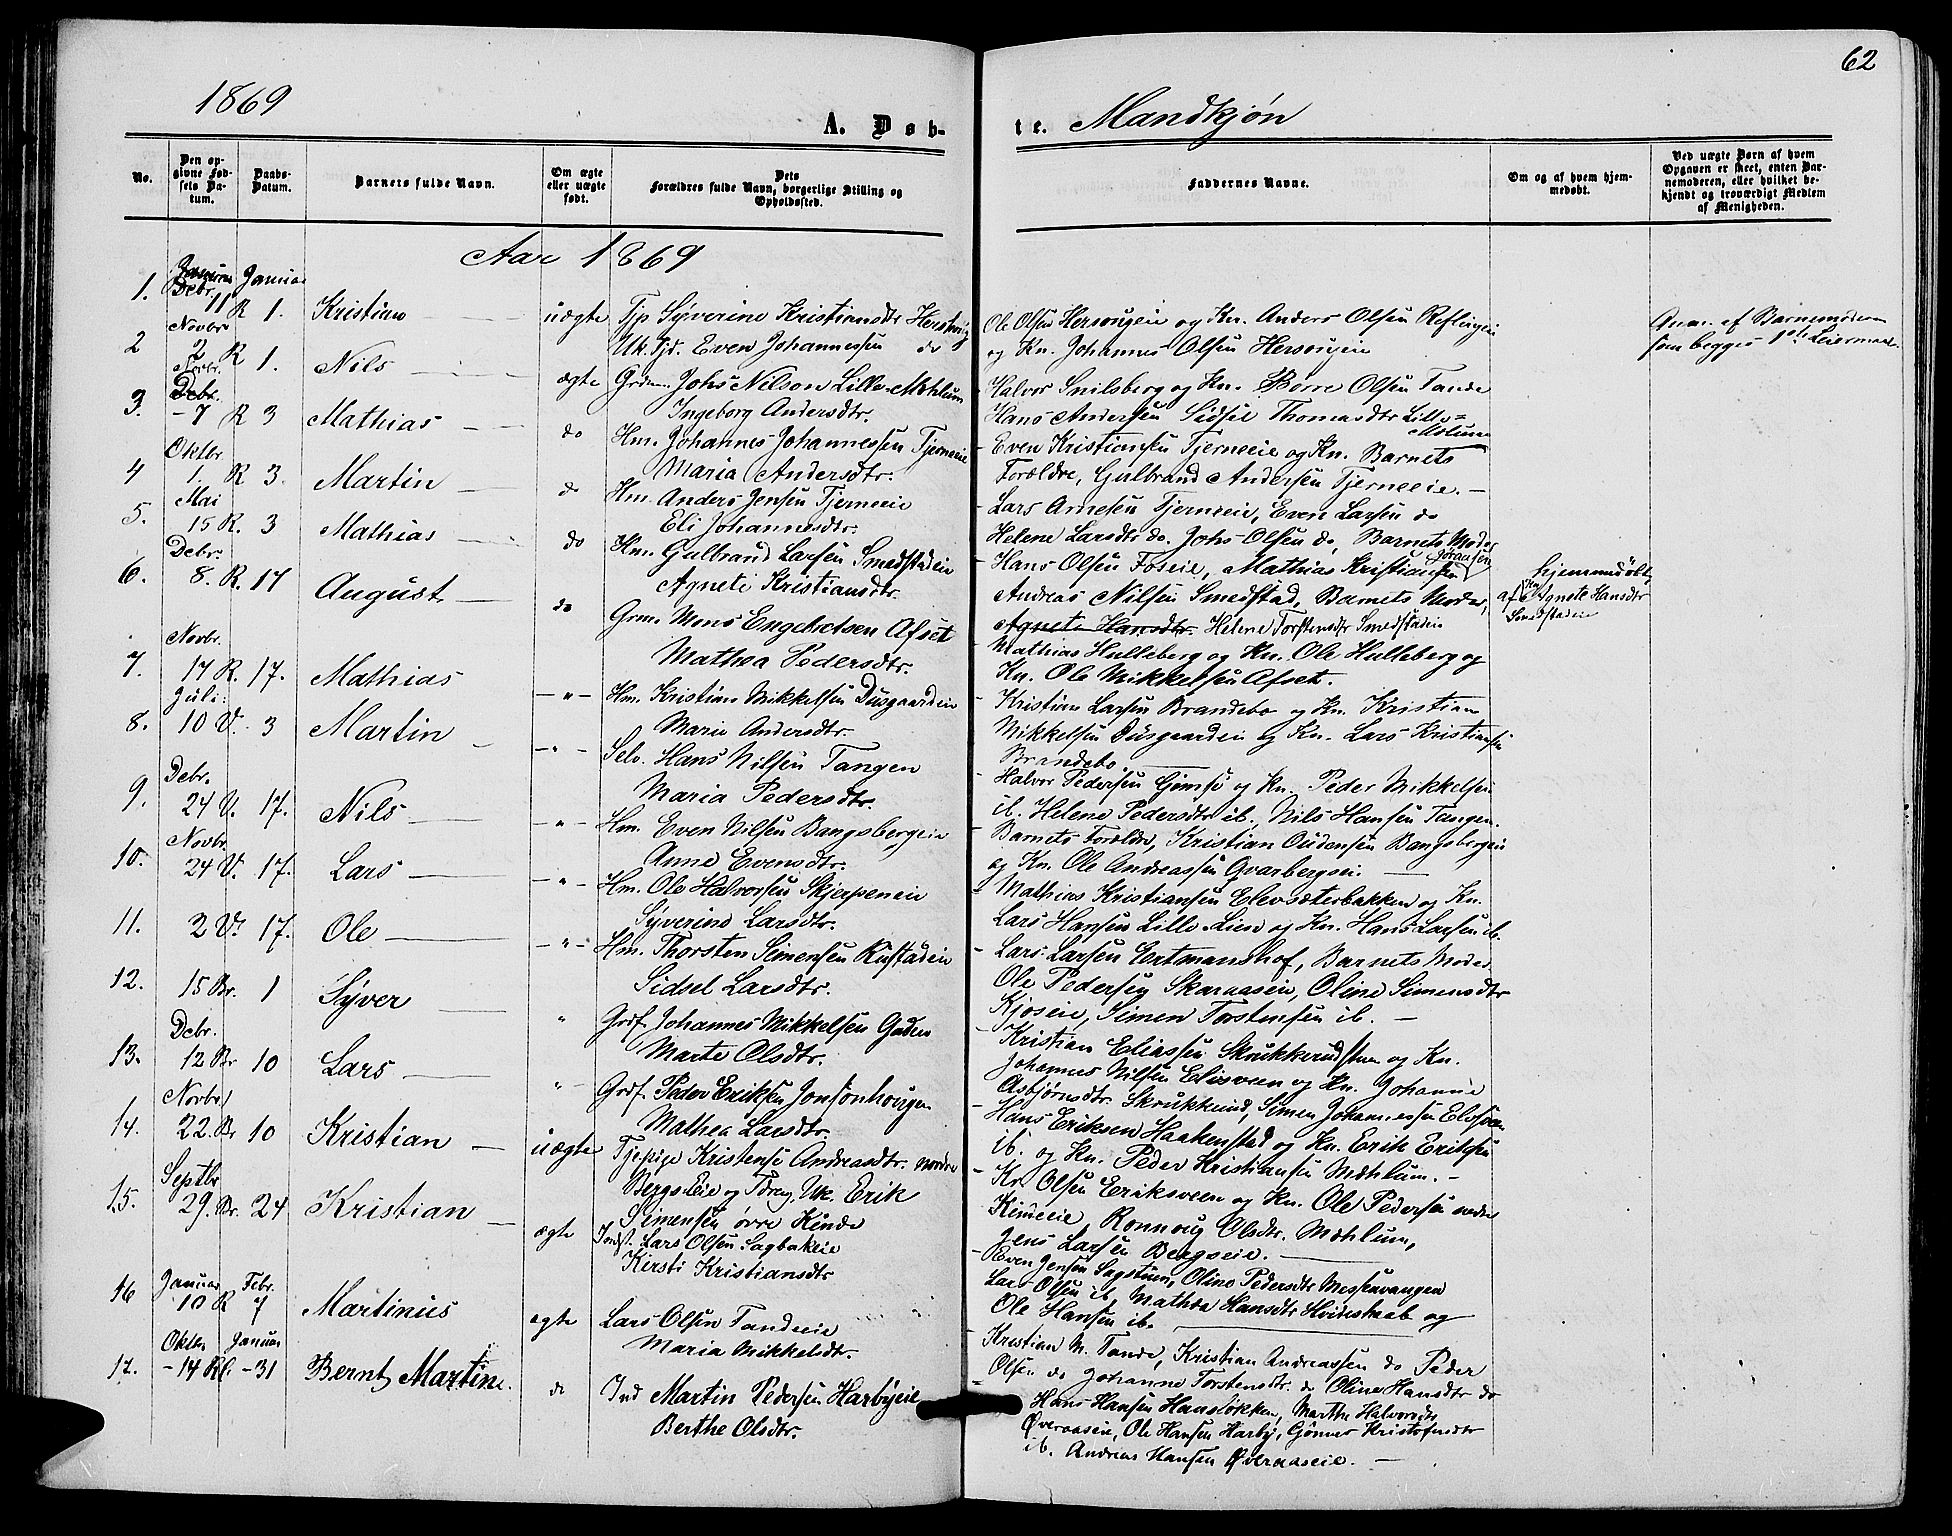 62
1869
A. Døb-
te. Mandkjøn
No.
Den op-
givne Fød-
sels Da-
tum.
Daabs-
Datum.
Barnets fulde Navn.
Om ægte
eller uægte
født.
Dets
Forældres fulde Navn, borgerlige Stilling og
Opholdssted.
Faddernes Navne.
Om og af hvem hjem-
medøbt.
Ved uægte Børn af hvem
Opgaven er skeet, enten Bar-
nemoderen, eller hvilket be-
kjendt og troværdigt Medlem
af Menigheden.
Aar 1869
1. Debr. 11 R Januar 1. Kristian uægte Tjp Syverine Kristiansdtr
Uk. Tjd. Even Johannessen do
Ole Olsen Hersougeie og Kn. Anders Olsen
og Kn. Johannes Olsen Hersougeie
af Barnemoderen
som begges 1ste Leiermaal.
2 Novbr 2 R 1. Nils ægte Grdm. Johs Nilsen Lille-Mæhlum
Ingeborg Andersdtr.
Halvor Snilsberg og Kn. Børre Olsen Tande
Hans Andersen Sidsel Thomasdtr Lille=
Mælum
3. Novbr. - 7 R 3 Mathias do Hm. Johannes Johannessen Tjerneeie
Maria Andersdtr.
Even Kristiansen Tjerneeie og Kn. Barnets
Forældre, Gulbrand Andersen Tjerneeie. -
4 Oktbr 1. R 3. Martin do Hm. Anders Jensen Tjerneeie
Eli Johannesdtr.
Lars Arnesen Tjerneeie, Even Larsen do
Helene Larsdtr do. Johs Olsen do, Barnets Moder
5. Mai 15 R. 3 Mathias do Hm. Gulbrand Larsen Smedstadeie
Agnete Kristiansdtr.
Hans Olsen Foseie, Mathias Kristiansen
Andreas Nilsen Smedstad, Barnets Moder,
Agnete Hansdtr. Helene Torstensdtr Smedstadeie
hjemmedøbt
af Agnete Hansdtr
Smedstadeie
6. Debr. 8. R. 17 August do Grm. Mons Engebretsen Afset
Mathea Pedersdtr.
Mathias Hulleberg og Kn. Ole Hulleberg og
Kn. Ole Mikkelsen Afset.
7. Novbr. 17 R. 17. Mathias -"- Hm. Kristian Mikkelsen Dusgaardeie
Marie Andersdtr.
Kristian Larsen Brandebo og Kn. Kristian
Mikkelsen Dusgaardeie og Kn. Lars Kristiansen
Brandebo
8. Juli: 10 V. 3 Martin -"- Selv. Hans Nilsen Tangen
Maria Pedersdtr.
Halvor Pedersen Gjømse og Kn. Peder Mikkelsen
ib. Helene Pedersdtr ib., Nils Hansen Tangen.
9. Debr. 24 V. 17. Nils -"- Hm. Even Nilsen Bangsbergeie
Anne Evensdtr.
Barnets Forældre, Kristian Oudensen Bangsbergeie
og Kn. Ole Andreassen Qvarbergeie.
10. Novbr. 24 V. 17. Lars -"- Hm. Ole Halvorsen Skjerpeneie
Syverine Larsdtr.
Mathias Kristiansen Elevsæterbakken og Kn.
Lars Hansen Lille-Lien og Kn. Hans Larsen ib.
11. 2 V. 17. Ole -"- Hm. Thorsten Simensen
Sidsel Larsdtr.
Lars Larsen Eertmanshof, Barnets Moder
Ole Pedersen Skaraaseie, Oline Simensdtr
Kjoseie, Simen Torstensen ib. -
12. 15 Br. 1 Syver " Grdf. Johannes Mikkelsen Gaden
Marte Olsdtr.
Kristian Eliassen Skrukkerudstuen og Kn.
Johannes Nilsen Elisveen og Kn. Johanne
Asbjørnsdtr. Skrukkerud, Simen Johannessen
13. Debr. 12 Br 10 Lars " Grdf. Peder Eriksen Jonsonhougen
Mathea Larsdtr.
Hans Eriksen Haakenstad og Kn. Erik Eriksen
ib. og Kn. Peder Kristiansen Mæhlum. -
14. Novbr 22. Br 10 Kristian uægte Tjepige Kristense Andreasdtr. nordre
Bergseie og Tdreng, Uk. Erik
Simensen øvre Kinde
Kr. Olsen Eriksveen og Kn. Ole Pedersen nedre
Kindeeie Ronnoug Olsdtr. Mæhlum,
Jens Larsen Bergseie.
15. Septbr 29. Br. 24 Kristian ægte Indst. Lars Olsen Sagbakeie
Kirsti Kristiansdtr
Even Jensen Sagstuen, Oline Pedersdtr Messenvangen
Lars Olsen ib, Mathea Hansdtr Hvideskaab og
Ole Hansen ib.
16 Januar 10 R Febr. 7 Martinus egte Lars Olsen Tandeeie
Maria Mikkelsdtr.
Kristian M. Tande, Kristian Andreassen do Peder
Olsen do Johanne Torstensdtr. do Oline Hansdtr do
17. Oktbr -14 R Januar -31 Bernt Martin. do Ind Martin Pedersen Harbyeie
Berthe Olsdtr.
Hans Hansen Hansløkken, Marthe Halvorsdtr
Øveraaseie, Ole Hansen Harby, Gønner Kristofersdtr
ib. Andreas Hansen Øveraaseie. -